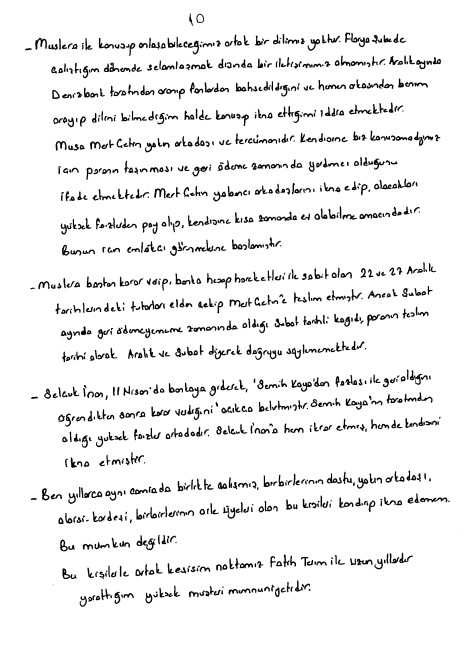 10
- Muslera ile konuşup anlaşabileceğimiz ortak bir dilimiz yoktur. Florya Şubede
çalıştığım dönemde selamlaşmak dışında bir iletişimimiz olmamıştır. Aralık ayında
Denizbank tarafından aranıp fonlardan bahsedildiğini ve hemen arkasından benim
arayıp dilini bilmediğim halde konuşup ikna ettiğimi iddia etmektedir.
Musa Mert Çetin yakın arkadaşı ve tercümanıdır. Kendisine biz konuşamadığımız
için paranın taşınması ve geri ödeme zamanında yardımcı olduğunu
ifade etmektedir. Mert Çetin yabancı arkadaşlarını ikna edip, alacakları
yüksek faizlerden pay alıp, kendisine kısa zamanda ev alabilme amacındadır.
Bunun için emlakcı görüşmelerine başlamıştır.
- Muslera baştan karar verip, banka hesap hareketleri ile sabit olan 22 ve 27 Aralık
tarihlerindeki tutarları elden çekip Mert Çetin'e teslim etmiştir. Ancak Şubat
ayında geri ödeyememe zamanında aldığı Şubat tarihli kağıdı, paranın teslim
tarihi olarak Aralık ve Şubat diyerek doğruyu söylememektedir.
- Selçuk İnan, 11 Nisan'da bankaya giderek, 'Semih Kaya'dan fazlası ile geri aldığını
öğrendikten sonra karar verdiğini' açıkça belirtmiştir. Semih Kaya'nın tarafımdan
aldığı yüksek faizler ortadadır. Selçuk İnan'a hem ikrar etmiş, hem de kendisini
ikna etmiştir.
- Ben yıllarca aynı camiada birlikte çalışmış, birbirlerinin dostu, yakın arkadaşı,
abisi-kardeşi, birbirlerinin aile üyeleri olan bu kişileri kandırıp ikna edemem.
Bu mümkün değildir.
Bu kişilerle ortak kesişim noktamız Fatih Terim ile uzun yıllardır
yarattığım yüksek müşteri memnuniyetidir.